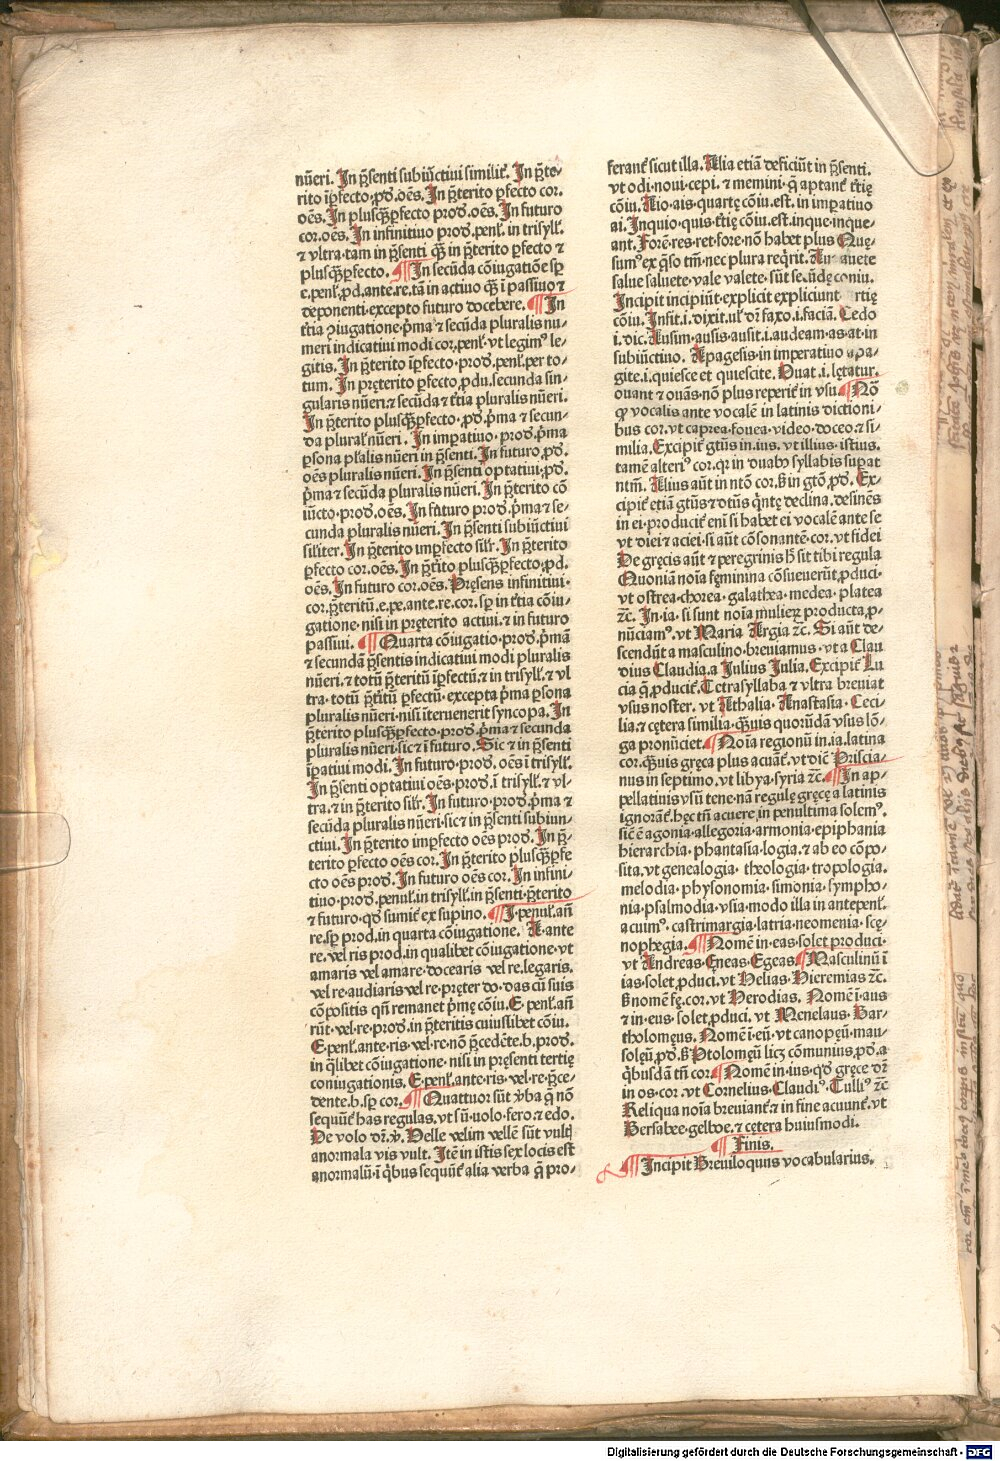 nūeri. In p̄senti subiūctiui similiť. In p̄te-
rito īp̄fecto ꝓď. oēs. In p̄terito ꝑfecto cor.
oēs. In plusq̄ꝑfecto prod. oēs. In futuro
cor. oēs. In infinitiuo prod. penl̄. in trisyll̄.
⁊ vltra. tam in p̄senti q̄ȝ in p̄terito ꝑfecto ⁊
plusq̄ꝑfecto. ¶ In secūda cōiugatiōe sꝑ
e. penl̄. ꝓd. ante. re. tā in actiuo q̄ȝ ī passiuo ⁊
deponenti. excepto futuro docebere. ¶ In
t̄tia ɔiugatione. p̄ma ⁊ secūda pluralis nu-
meri indicatiui modi cor. penl̄. vt legimꝰ le-
gitis. In p̄terito īp̄fecto prod. penl̄. per to-
tum. In pręterito ꝑfecto. ꝓdu. secunda sin-
gularis nūeri. ⁊ secūda ⁊ t̄tia pluralis nūeri.
In p̄terito plusq̄ꝑfecto. ꝓď. p̄ma ⁊ secun-
da plural̄ nūeri. In imꝑatiuo. prod. p̄ma
ꝑsona pl̄alis nūeri in p̄senti. In futuro. ꝓď.
oēs pluralis nūeri. In p̄senti optatiui. ꝓď.
p̄ma ⁊ secūda pluralis nūeri. In p̄terito cō
iūcto. prod. oēs. In futuro prod. p̄ma ⁊ se-
cunda pluralis nūeri. In p̄senti subiūctiui
sil̄iter. In p̄terito imꝑfecto sil̄r. In p̄terito
ꝑfecto cor. oēs. In p̄t̄ito plusq̄ꝑfecto. ꝓd.
oēs. In futuro cor. oēs. Pręsens infinitiui.
cor. p̄teritū. e. pe. ante. re. cor. sꝑ in t̄tia cōiu-
gatione. nisi in pręterito actiui. ⁊ in futuro
passiui. ¶ Quarta cōiugatio. prod. p̄mā
⁊ secundā p̄sentis indicatiui modi pluralis
nūeri. ⁊ totū p̄teritū īꝑfectū. ⁊ in trisyll̄. ⁊ vl
tra. totū p̄t̄itū ꝑfectū. excepta p̄ma ꝑsona
pluralis nūeri. nisi īteruenerit syncopa. In
p̄terito plusq̄ꝑfecto. prod. p̄ma ⁊ secunda
pluralis nūeri. sic ⁊ ī futuro. Sic ⁊ in p̄senti
īꝑatiui modi. In futuro. prod. oēs ī trisyll̄.
In p̄senti optatiui oēs. prod. ī trisyll̄. ⁊ vl-
tra. ⁊ in p̄terito sil̄r. In futuro. prod. p̄ma ⁊
secūda pluralis nūeri. sic ⁊ in p̄senti subiun-
ctiui. In p̄terito impfecto oēs prod. In p̄-
terito ꝑfecto oēs cor. In p̄terito plusq̄ꝑfe
cto oēs prod. In futuro oēs cor. In infini-
tiuo. prod. penul̄. in trisyll̄. in p̄senti. p̄terito
⁊ futuro. qď sumiť ex supino. ¶ I. penul̄. añ
re. sꝑ prod. in quarta cōiugatione. A. ante
re. vel ris prod. in qualibet cōiugatione. vt
amaris vel amare. docearis vel re. legaris.
vel re. audiaris vel re. pręter do. das cū suis
cōpositis qñ remanet p̄mę cōiu. E. penl̄. añ
rūt. vel. re. prod. in p̄teritis cuiuslibet cōiu.
E. penl̄. ante. ris. vel. re. nō p̄cedēte. b. prod.
in q̄libet cōiugatione. nisi in pręsenti tertię
coniugationis. E. penl̄. ante. ris. vel. re. p̄ce-
dente. b. sꝑ cor. ¶ Quattuor sūt v̄ba q̄ nō
sequūť has regulas. vt sū. uolo. fero. ⁊ edo.
De volo dr̄. v̄. Velle velim vellē sūt vult
anormala vis vult. Itē in istis sex locis est
anormalū. ī q̄bus sequūť alia verba q̄ pro-
feranť sicut illa. Alia etiā deficiūt in p̄senti.
vt odi. noui. cepi. ⁊ memini. q̄ aptanť t̄tię
cōiu. Aio. ais. quartę cōiu. est. in imꝑatiuo
ai. Inquio. quis. t̄tię cōiu. est. inque. inque-
ant. Forē. res. ret. fore. nō habet plus Quę-
sumꝰ ex q̄so tm̄. nec plura req̄rit. Au auete
salue saluete. vale valete. sūt secūdę coniu.
Incipit incipiūt. explicit expliciunt rtię
cōiu. Infit. i. dixit. ul̄ dr̄ faxo. i. faciā. Cedo
i. dic. Ausim. ausis. ausit. i. audeam. as. at. in
subiūctiuo. Apagesis. in imperatiuo apa-
gite. i. quiesce et quiescite. Ouat. i. lętatur.
ouant ⁊ ouās. nō plus reperiť in vsu. ¶ Nō
ꝙ vocalis ante vocalē in latinis dictioni-
bus cor. vt caprea. fouea. video. doceo. ⁊ si-
milia. Excipiť gtūs in. ius. vt illius. istius.
tamē alteriꝰ cor. qr̄ in duabȝ syllabis suꝑat
ntm̄. Alius aūt in ntō cor. ß in gtō. ꝓď. Ex-
cipiť etiā gtūs ⁊ dtūs q̄ntę declina. desinēs
in ei. producīť eni si habet ei vocalē ante se
vt diei ⁊ aciei. si aūt cōsonantē. cor. vt fidei
De gręcis aūt ⁊ peregrinis hߵ sit tibi regula
Quoniā noīa fęminina cōsueuerūt. ꝓduci.
vt ostrea. chorea. galathea. medea. platea
⁊c̄. In. ia. si sunt noīa mulierꝝ producta. ꝓ-
nūciamꝰ. vt Maria Argia ⁊c̄. Si aūt de-
scendūt a masculino. breuiamus. vt a Clau
dius Claudia. a Julius Julia. Excipiť Lu
cia q̄. ꝓduciť. Tetrasyllaba ⁊ vltra breuiat
vsus noster. vt Athalia. Anastasia. Ceci-
lia. ⁊ cętera similia. q̄uis quorūdā vsus lō-
ga pronūciet. ¶ Noīa regionū in. ia. latina
cor. q̄uis gręca plus acuāť. vt diē Priscia-
nus in septimo. vt libya. syria ⁊c̄. ¶ In ap-
pellatinis vsū tene. nā regulę gręcę a latinis
ignorāť. hęc tn̄ acuere in penultima solemꝰ.
sic̄ ē agonia. allegoria. armonia. epiphania
hierarchia. phantasia. logia. ⁊ ab eo cōpo-
sita. vt genealogia. theologia. tropologia.
melodia. physonomia. simonia. sympho-
nia. psalmodia. vsia. modo illa in antepenl̄.
acuimꝰ. castrimargia. latria. neomenia. scę-
nophegia. ¶ Nomē in. eas. solet produci.
vt Andreas. Eneas. Egeas. ¶ Masculinū ī
ias. solet. ꝓduci. vt Helias. Hieremias ⁊c̄.
ß nomē fę. cor. vt Herodias. Nomē ī. aus
⁊ in. eus. solet. ꝓduci. vt Menelaus. Bar-
tholomęus. Nomē ī. eū. vt canopęū. mau-
solęū. ꝓď. ß Ptolomęū licȝ cōmunius. ꝓď. a
q̄busdā tn̄ cor. ¶ Nomē in. ius. qď gręce dr̄
in os. cor. vt Cornelius. Claudiꝰ. Tulliꝰ ⁊c̄
Reliqua noīa breuianť. ⁊ in fine acuunť. vt
Bersabee. gelboe. ⁊ cętera huiusmodi.
¶ Finis.
¶ Incipit Breuiloquus vocabularius.
Digitalisierung gefördert durch die Deutsche Forschungsgemeinschaft - DFG